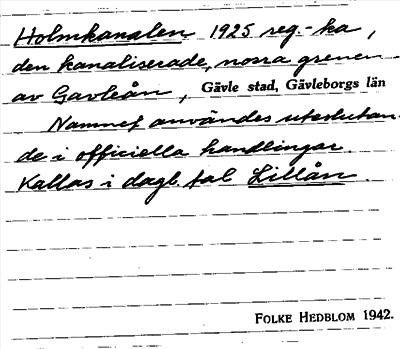 Holmkanalen 1925 reg.-ka,
den kanaliserade, norra grenen
av Gavleån, Gävle stad, Gävleborgs län
Namnet användes uteslutan-
de i officiella handlingar.
Kallas i dagl. tal Lillån.
FOLKE HEDBLOM 1942.